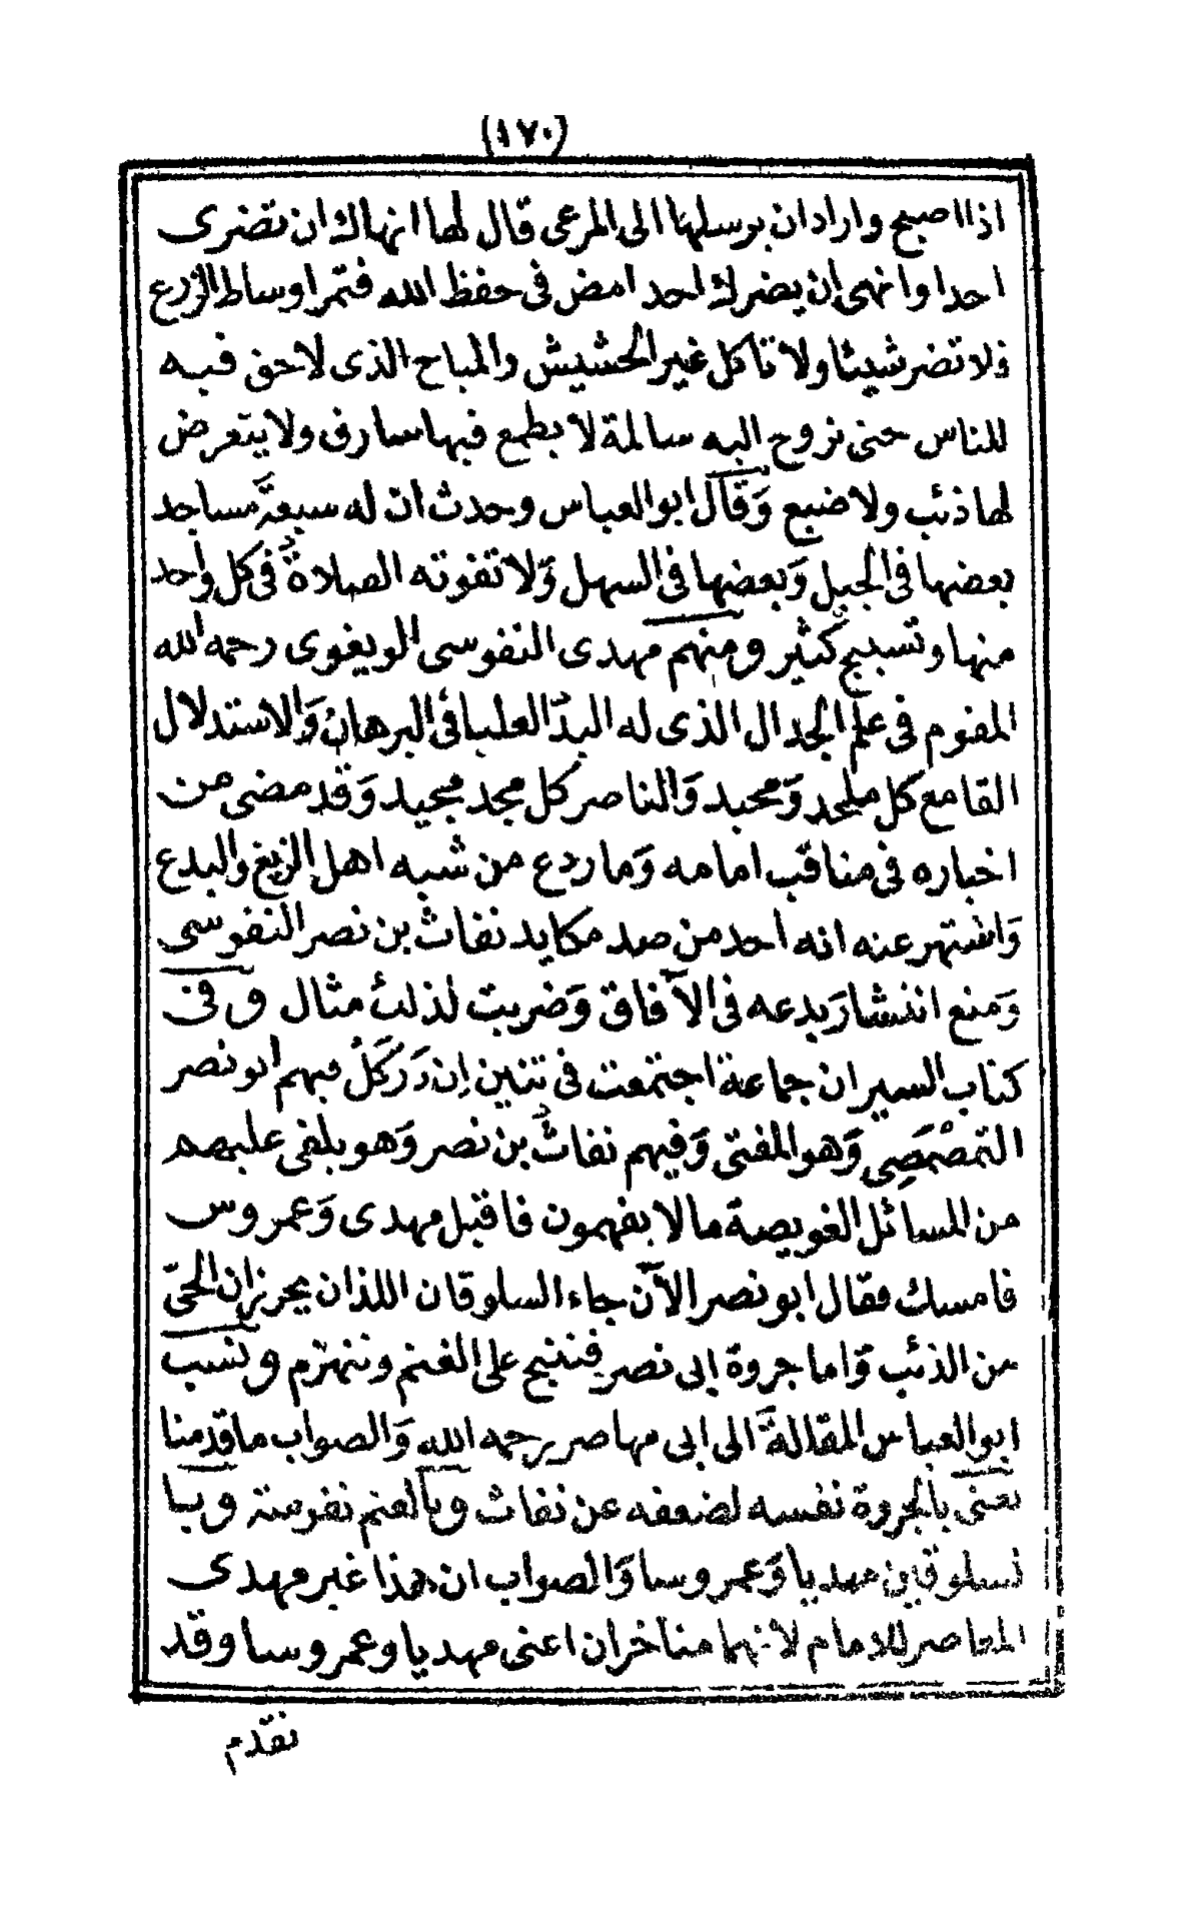 (١٧٠)
اذا اصبح واراد ان يرسلها الى المرعى قال لها انهاك ان تضرى
احدا وانهى ان يضرك احد امض فى حفظ الله فتمر اوساط الزرع
فلا تضر شيئا ولا تأكل غير الحشيش والمباح الذى لاحق فيه
للناس حتى تروح اليه سالمة لا يطمع فيها سارق ولا يتعرض
لها ذئب ولا ضبع وَقَال ابو العباس وحدث ان له سبعة مساجد
بعضها فى الجبل وَبعضها فى السهل وَلا تفوته الصلاة فى كل واحد
منها وتسبيح كثير ومنهم مهدى النفوسى الويغوى رحمه الله
المقوم فى علم الجدال الذى له اليد العليا فى البرهان وَالاستدلال
القامع كل ملحد وَمحيد وَالناصر كل مجد مجيد وَقد مضى من
اخباره فى مناقب امامه وَما ردع من شبه اهل الزيغ والبدع
وَاشتهر عنه انه احد من صد مكايد نفاث بن نصر النفوسى
وَمنع انتشار بدعه فى الآفاق وَضربت لذلك مثال وفى
كتاب السير ان جماعة اجتمعت فى تنين إن دَرَكَلْ فيهم ابو نصر
التمصْمَصِى وَهو المفتى وَفيهم نفاث بن نصر وَهو يلقى عليهم
من المسائل الغويصة ما لا يفهمون فاقبل مهدى وَعمروس
فامسك فقال ابو نصر الآن جاء السلوقان اللذان يحرزان الحىّ
من الذئب وَاما جروة ابى نصر فتنبح على الغنم وتنهزم ونسب
ابو العباس المقالة الى ابى مهاصر رحمه الله وَالصواب ما قدمنا
يعنى بالجروة نفسه لضعفه عن نفاث وبالغنم نفوسة وبا
لسلوقين مهديا وَعمروسا وَالصواب ان هذا غير مهدى
المعاصر للامام لانهما متأخران اعنى مهديا وعمروسا وقد
تقدم